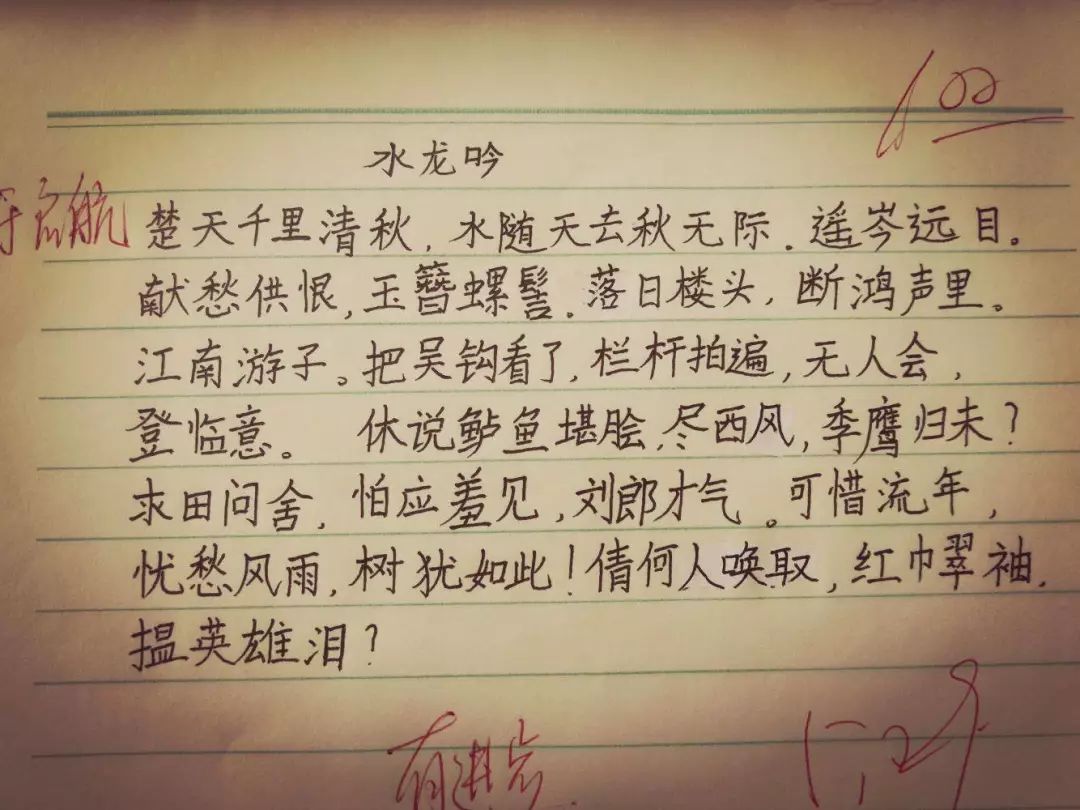 100
水龙吟
启航
楚天千里清秋，水随天去秋无际．遥岑远目。
献愁供恨，玉簪螺髻．落日楼头，断鸿声里。
江南游子。把吴钩看了，栏杆拍遍，无人会，
登临意。 休说鲈鱼堪脍，尽西风，季鹰归未？
求田问舍，怕应羞见，刘郎才气。可惜流年，
忧愁风雨，树犹如此！倩何人唤取，红巾翠袖．
揾英雄泪？
有进步